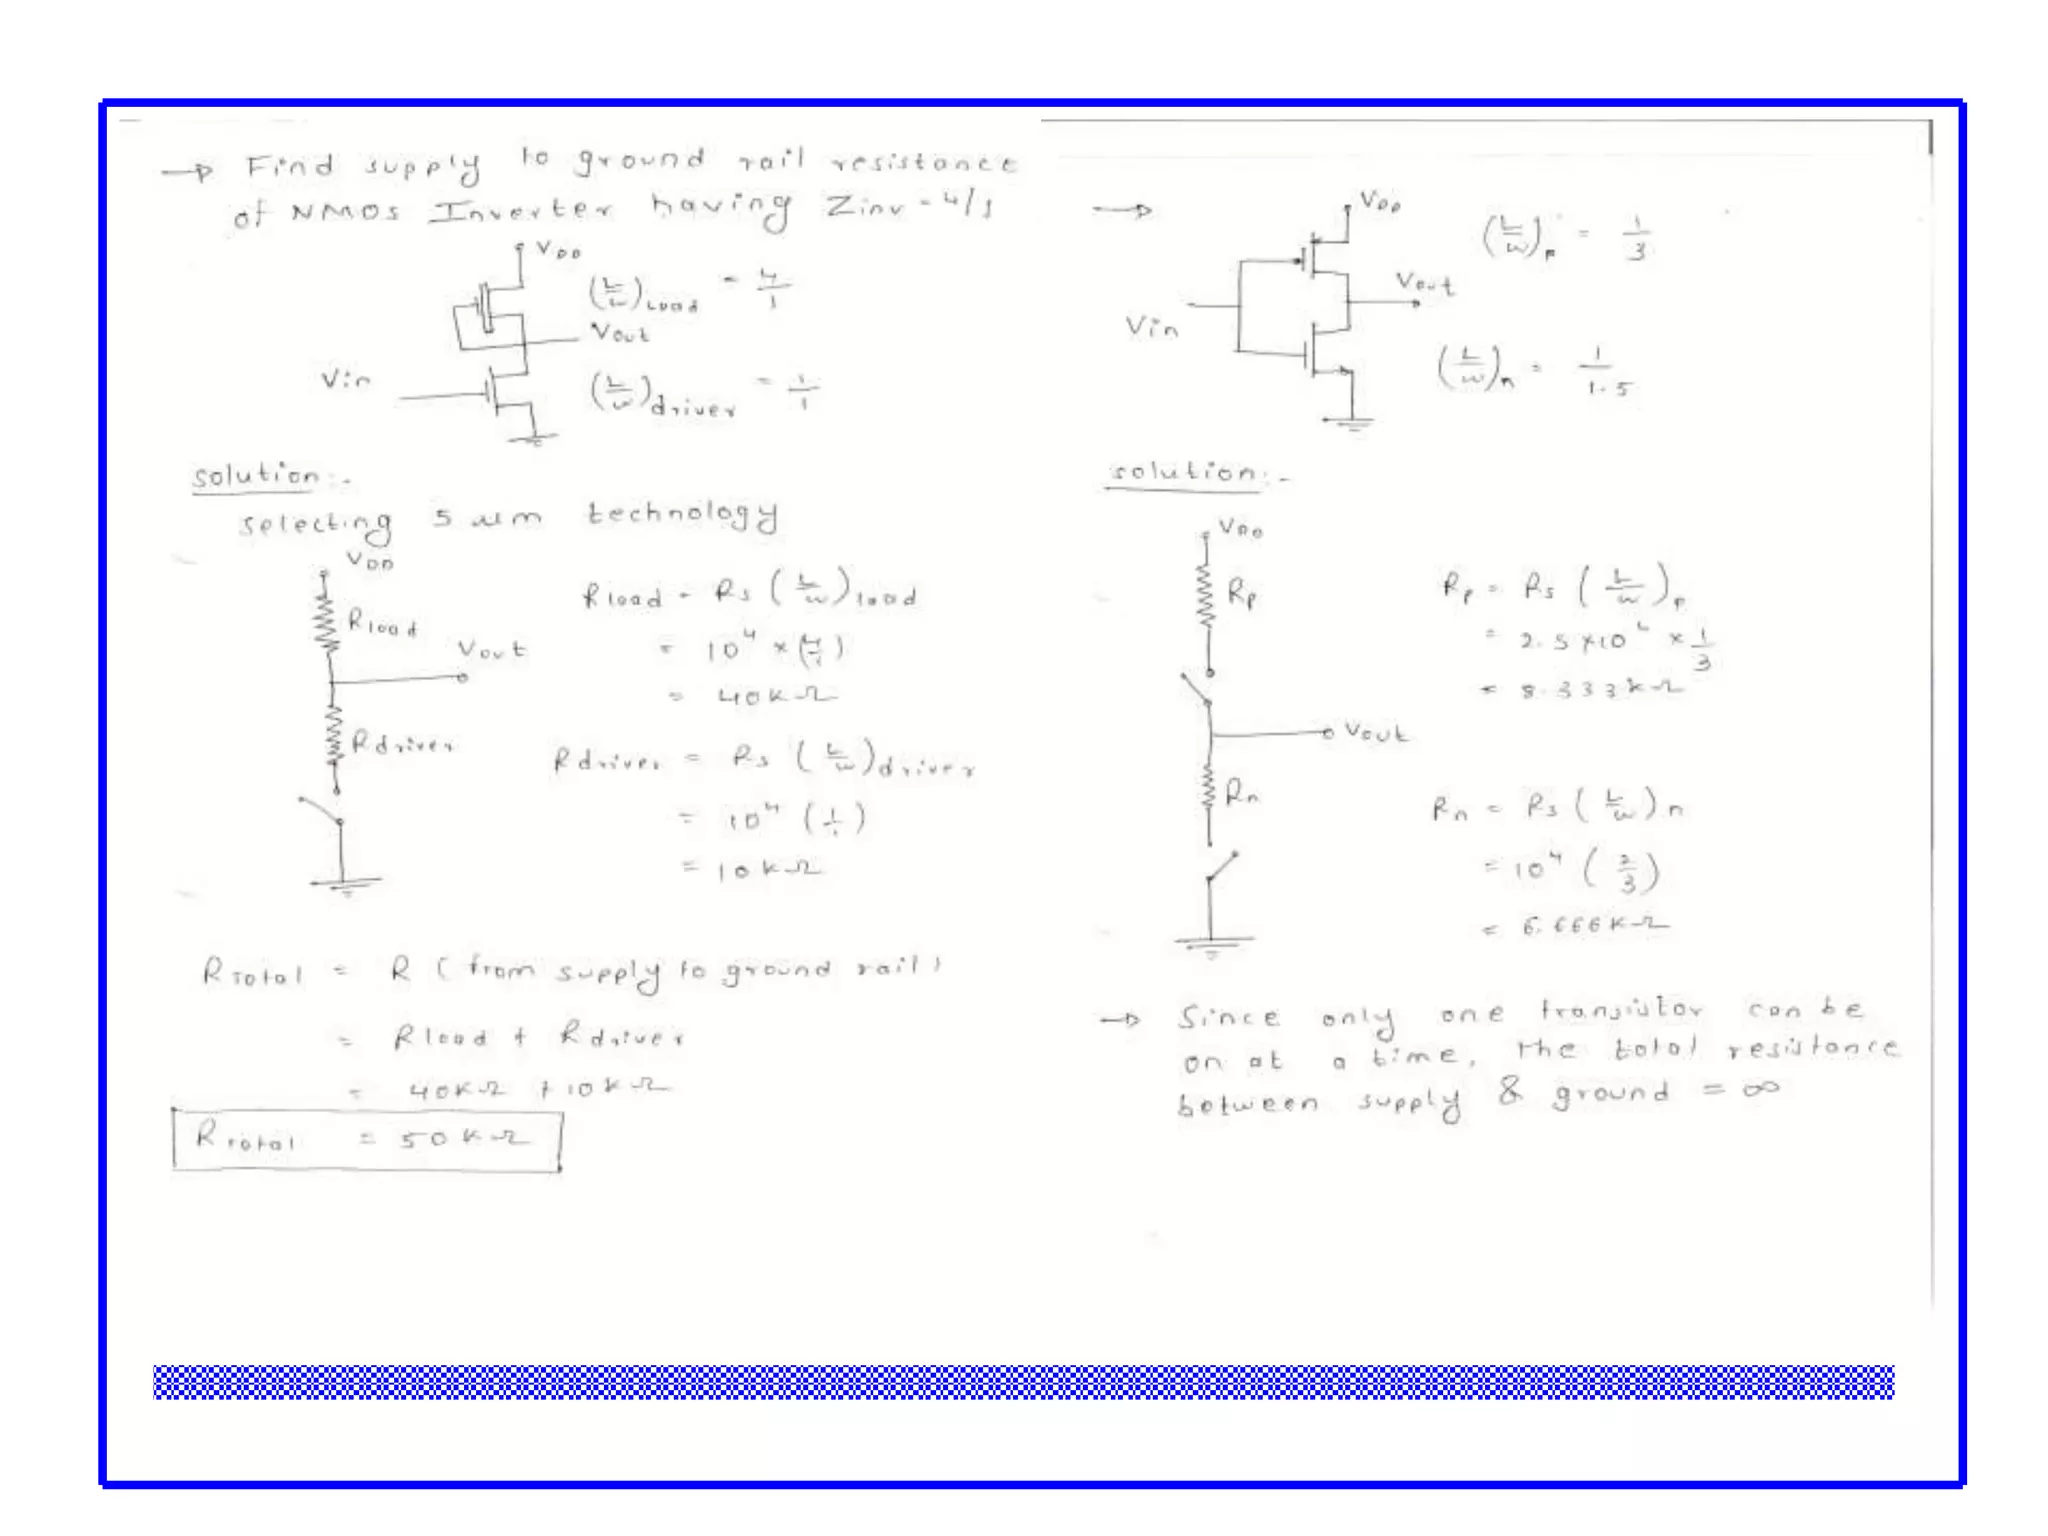 → Find supply to ground rail resistance
of NMOS Inverter having Zinv = 4/1
VDD
(L/W)Load = 4/1
Vout
Vin
(L/W)driver = 1/1
solution:-
selecting 5 μm technology
VDD
Rload
Vout
Rdriver
Rload = Rs (L/W)load
= 10^4 × (4/1)
= 40KΩ
Rdriver = Rs (L/W)driver
= 10^4 (1/1)
= 10KΩ
RTotal = R (from supply to ground rail)
= Rload + Rdriver
= 40KΩ + 10KΩ
RTotal = 50KΩ
→
VDD
(L/W)p = 1/3
Vout
Vin
(L/W)n = 1/1.5
solution:-
VDD
Rp
Vout
Rn
Rp = Rs (L/W)p
= 2.5×10^4 × 1/3
= 8.333KΩ
Rn = Rs (L/W)n
= 10^4 (2/3)
= 6.666KΩ
→ Since only one transistor can be
on at a time, the total resistance
between supply & ground = ∞